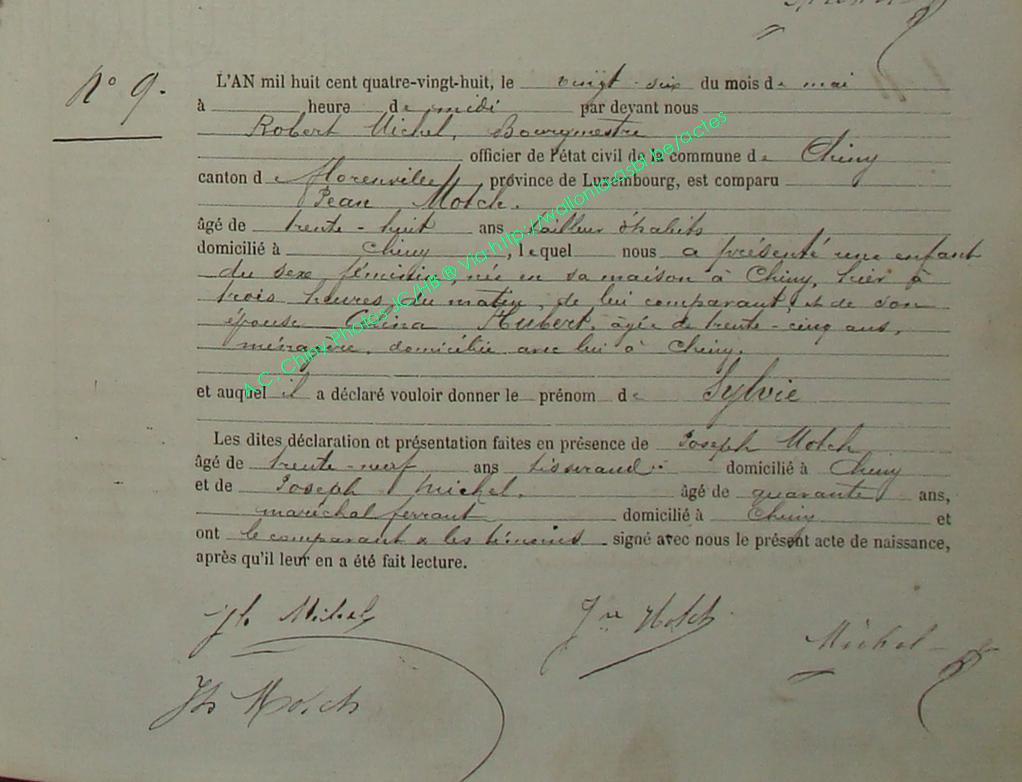 N° 9.
L'AN mil huit cent quatre-vingt-huit, le vingt-six du mois de mai
à heure de midi par devant nous
Robert Michel, Bourgmestre
officier de l'état civil de la commune de Chiny
canton de Florenville, province de Luxembourg, est comparu
Jean Motch.
âgé de trente-huit ans tailleur d'habits
domicilié à Chiny, lequel nous a présenté une enfant
du sexe féminin, née en sa maison à Chiny, hier à
trois heures du matin, de lui comparant, et de son
épouse Hubert, âgée de trente-cinq ans,
ménagère, domiciliée avec lui à Chiny.
et auquel il a déclaré vouloir donner le prénom de Sylvie
Les dites déclaration et présentation faites en présence de Joseph Motch
âgé de trente-neuf ans tisserand domicilié à Chiny
et de Joseph Michel. âgé de quarante ans,
maréchal ferrant domicilié à Chiny et
ont le comparant & les témoins signé avec nous le présent acte de naissance,
après qu'il leur en a été fait lecture.
Jh Michel
Motch
Michel
Jh Motch
A.C. Chiny-Photos JC/HB ® via http://wallonia-asbl.be/actes